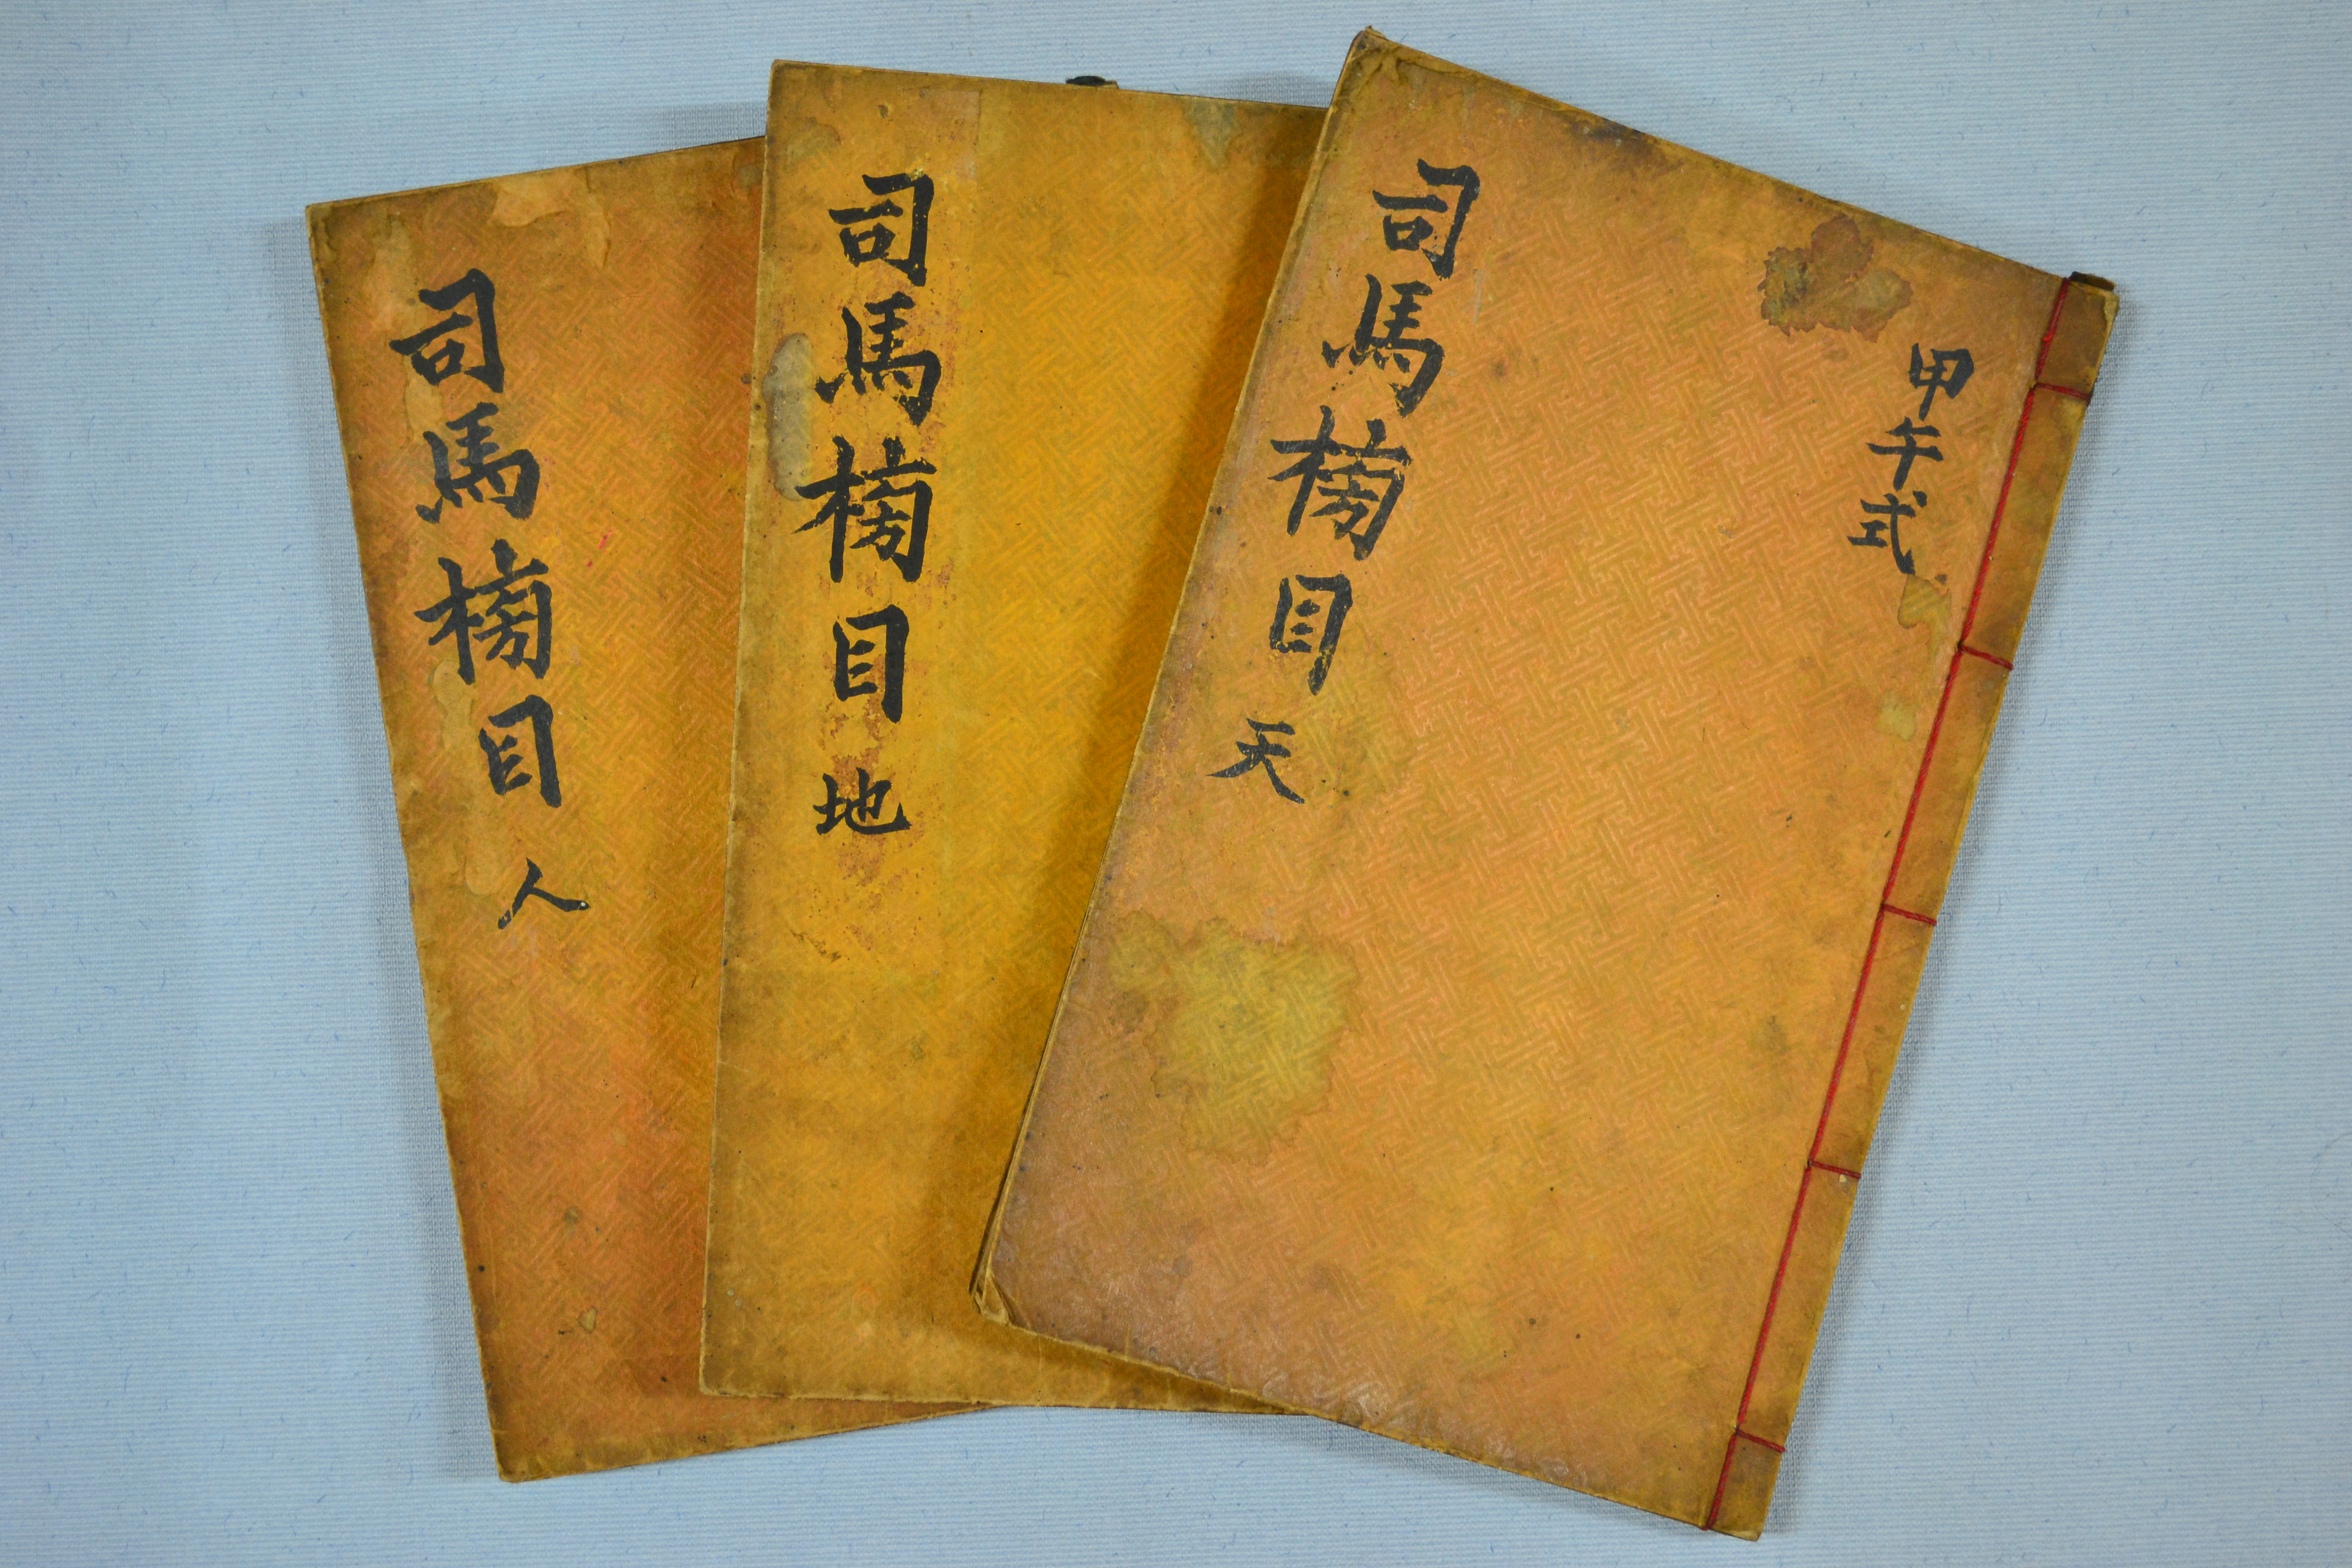 甲午式
司馬榜目 天
司馬榜目 地
司馬榜目 人